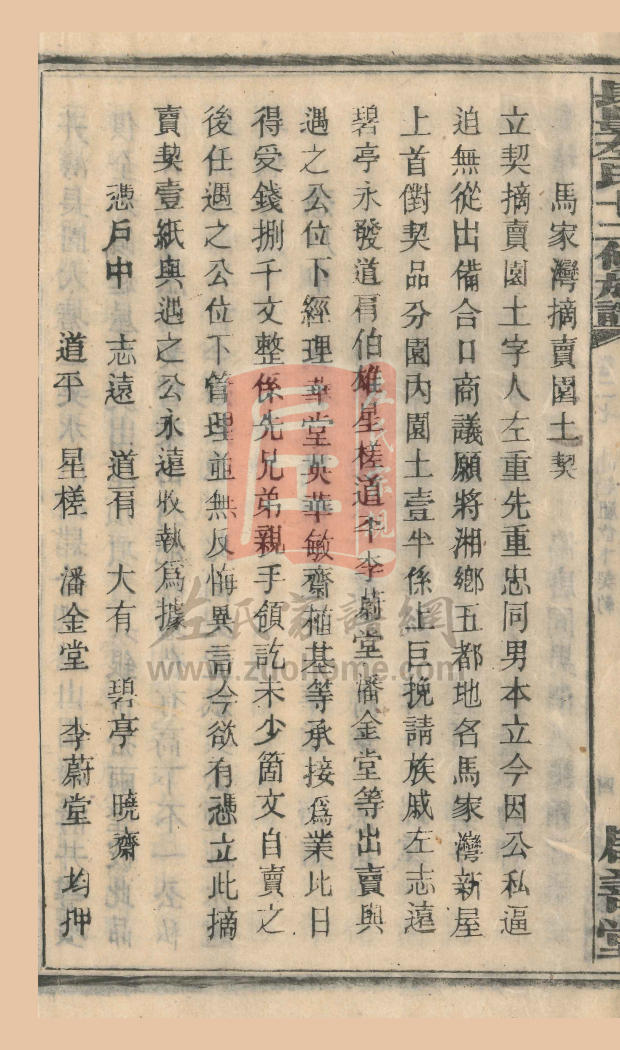 馬家灣摘賣園土契
立契摘賣園土字人左重先重忠同男本立今因公私逼
迫無從出備合口商議願將湘鄉五都地名馬家灣新屋
上首儹契品分園內園土壹半係上巨挽請族戚左志遠
碧亭永發道肩伯雄星槎道平李蔚堂潘金堂等出賣與
遇之公位下經理華堂英華敏齋植基等承接為業比日
得受錢捌千文整係先兄弟親手領訖未少箇文自賣之
後任遇之公位下管理並無反悔異言今欲有憑立此摘
賣契壹紙與遇之公永遠收執為據
憑戶中 志遠 道肩 大有 碧亭 曉齋
道平 星槎 潘金堂 李蔚堂 均押
左氏家譜網
www.zuohome.com